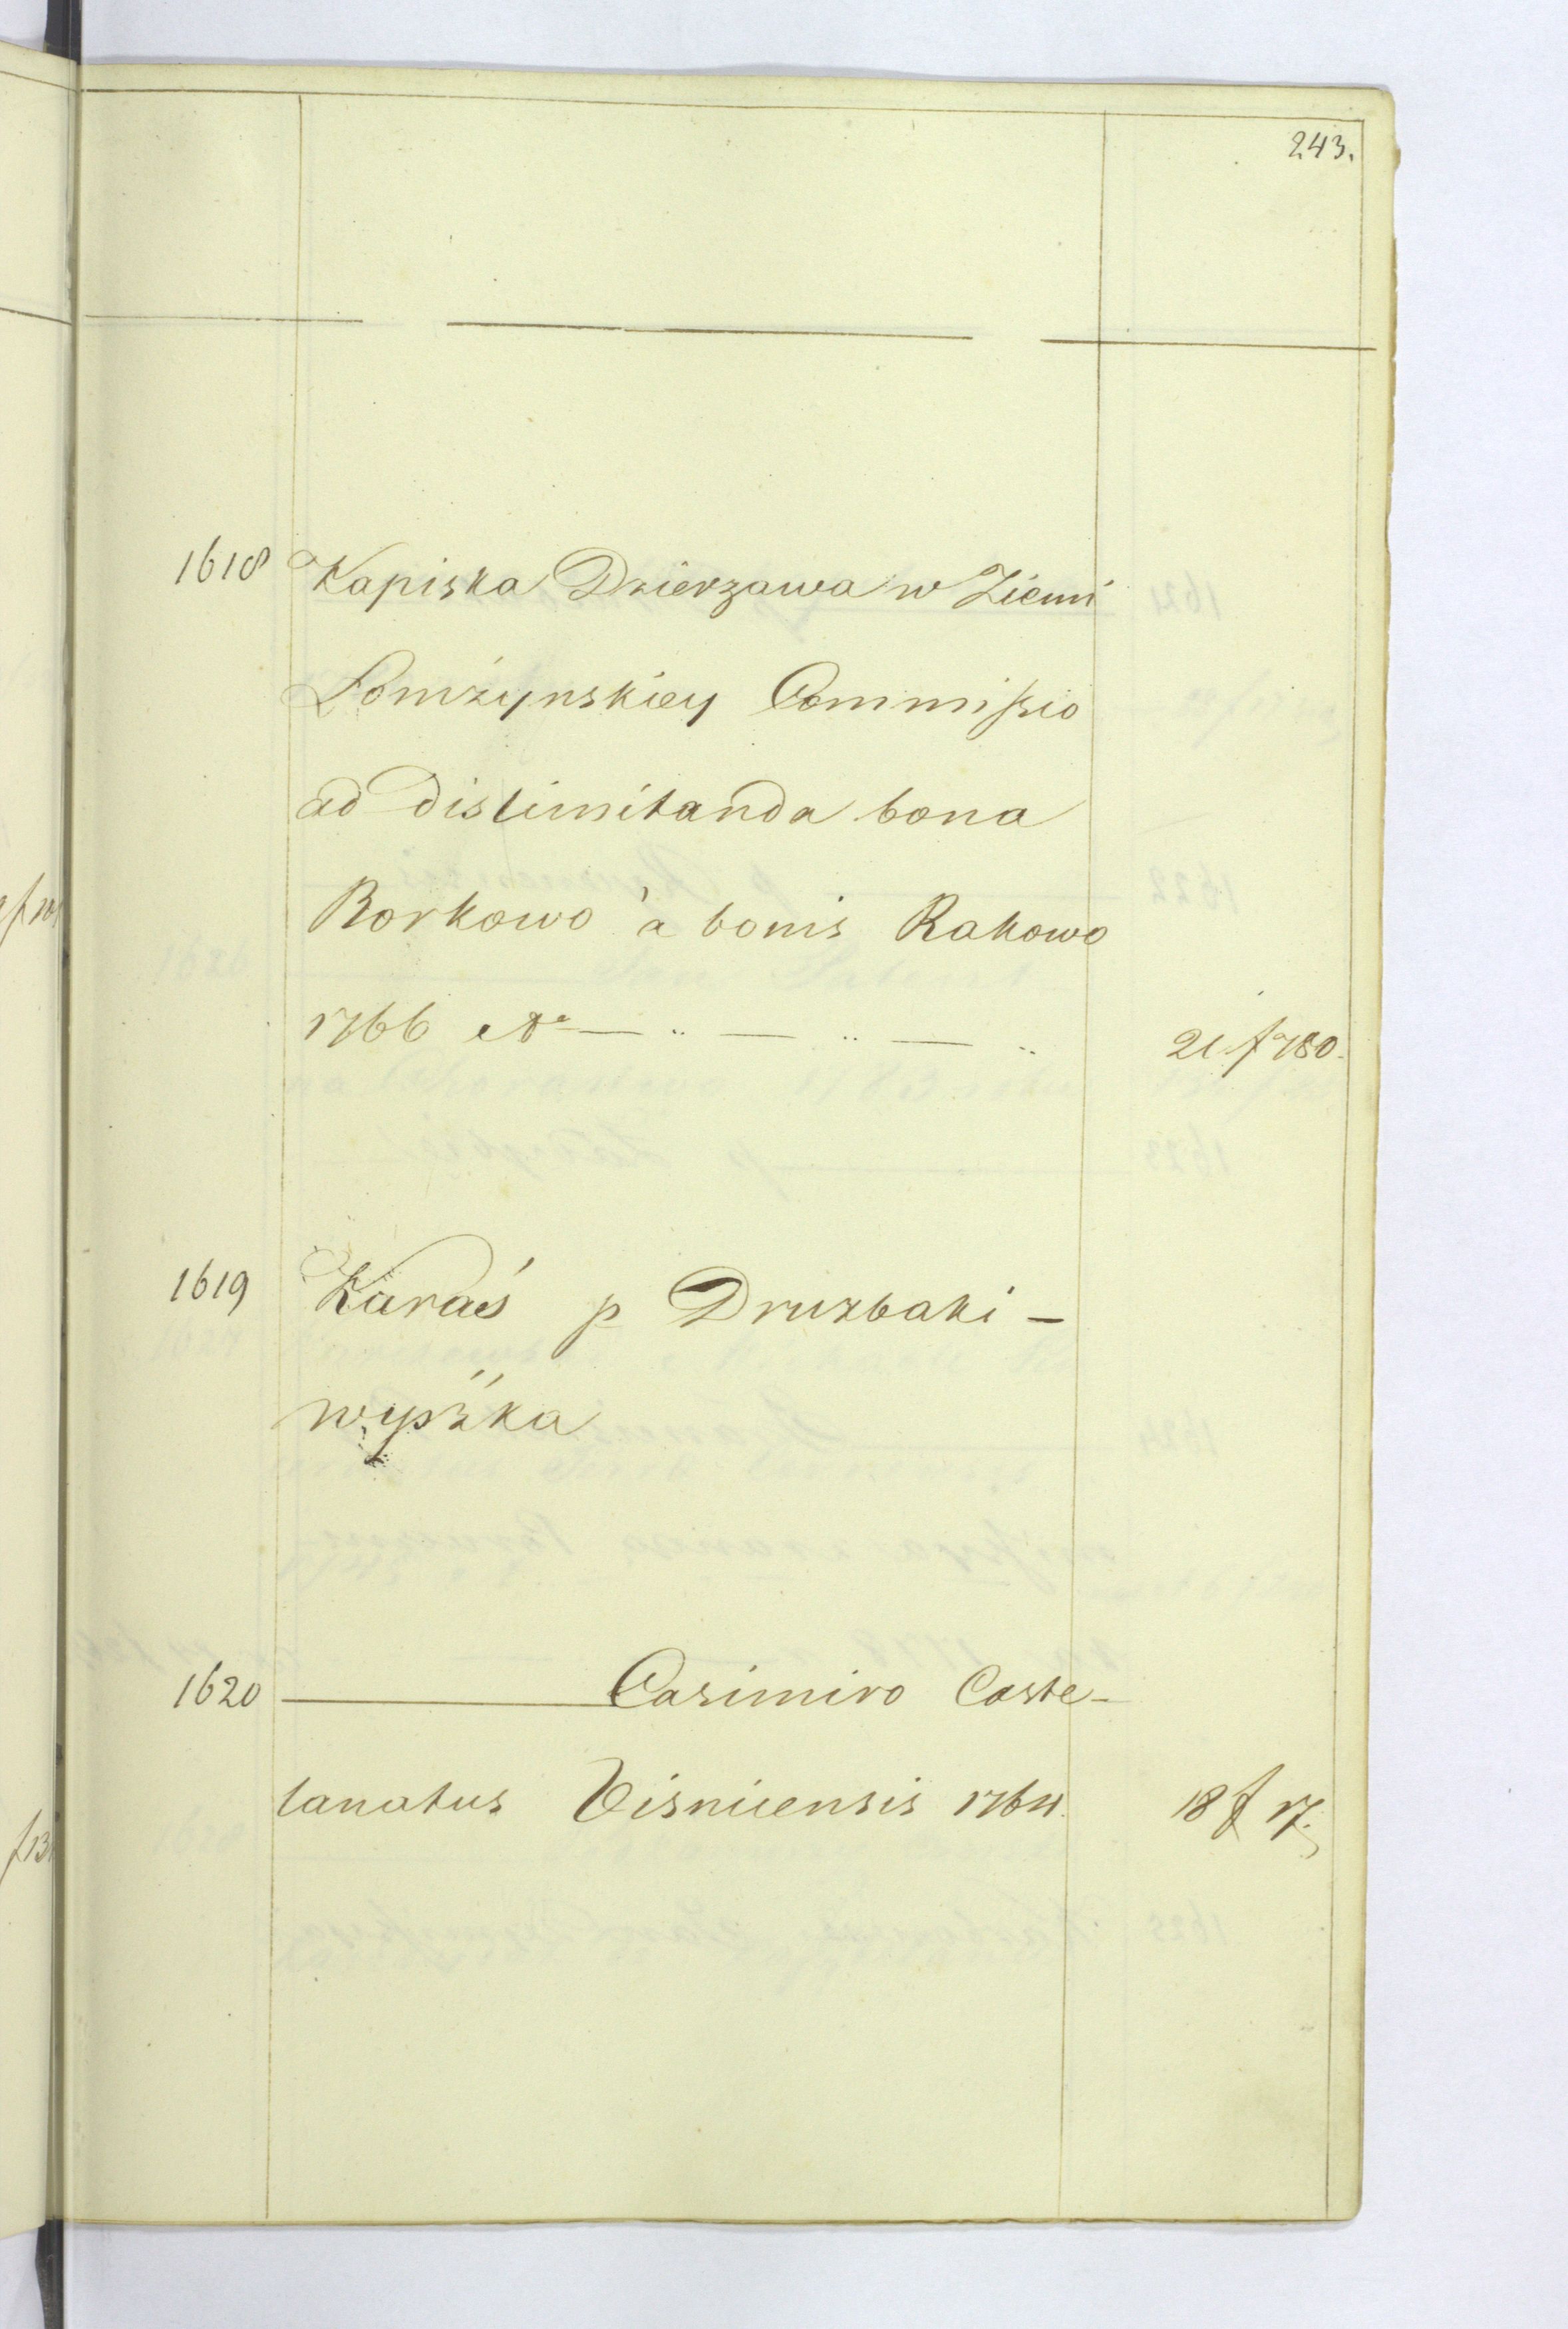 243.
1618 Kapiska Dzierzawa w Ziemi
Łomżynskiey Commissio
ad dislimitanda bona
Borkowo à bonis Rakowo
1766 etc — .. — .. — .. 21 f 780.
1619 Karaś p Druzbaki -
wyszka
1620 ——— Casimiro Caste-
lanatus Visnicensis 1764. 18 f 17.